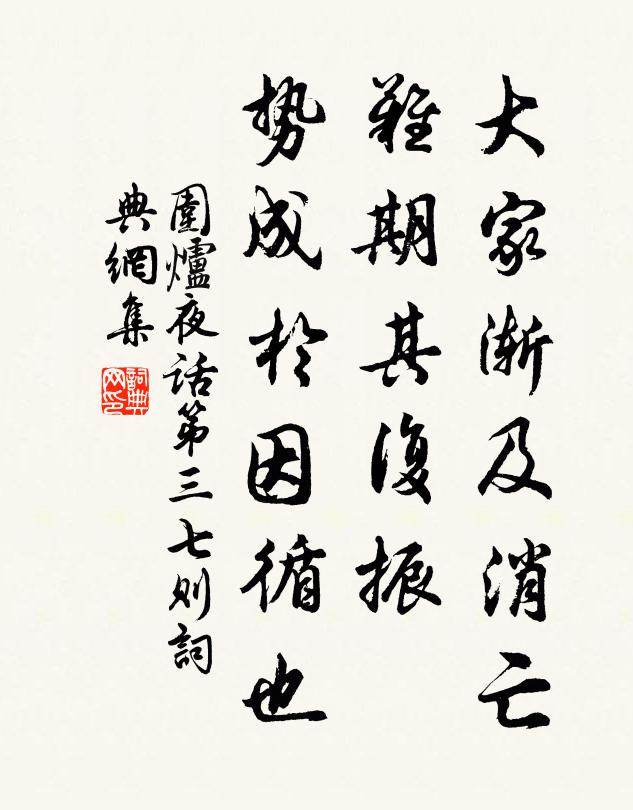 大家漸及消亡
難期其復振
勢成於因循也
圍爐夜話第三七則詞
典網集
詞典
网印